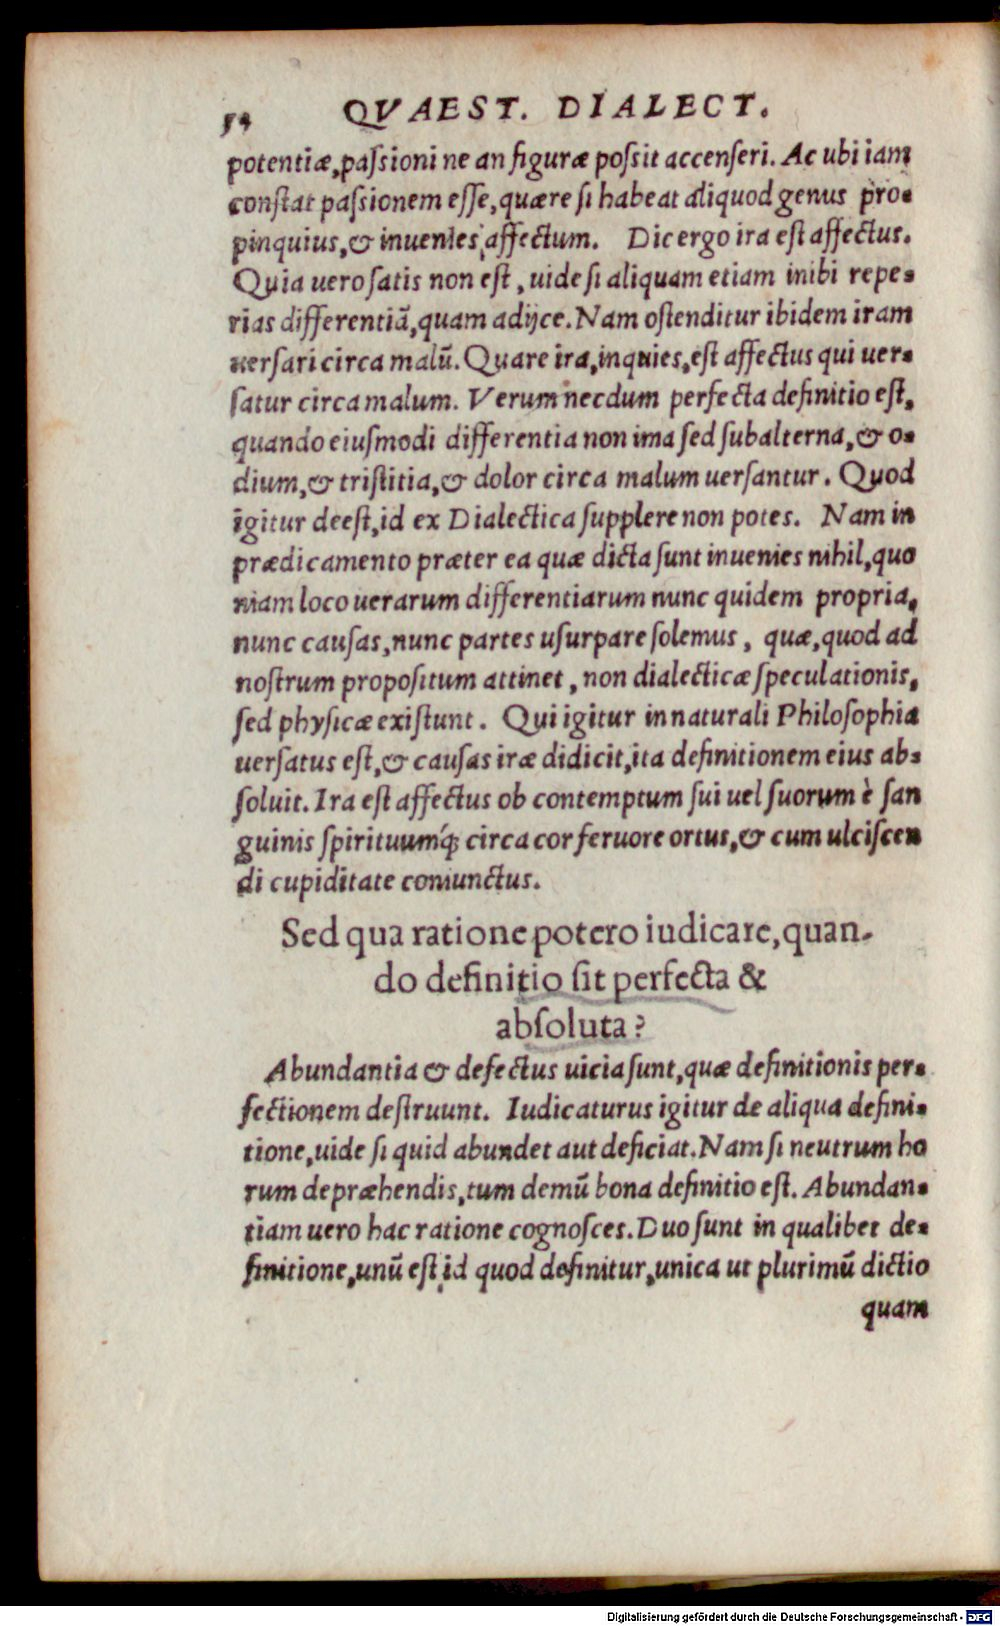 54 QVAEST. DIALECT.
potentiæ,paſsioni ne an figuræ poſsit accenſeri. Ac ubi iam
conſtat paſsionem eſſe,quære ſi habeat aliquod genus pro-
pinquius,& inuenies affectum. Dic ergo ira eſt affectus.
Quia uero ſatis non eſt, uide ſi aliquam etiam inibi repe-
rias differentiã,quam adijce. Nam oſtenditur ibidem iram
uerſari circa malũ. Quare ira,inquies,eſt affectus qui uer-
ſatur circa malum. Verum necdum perfecta definitio eſt,
quando eiuſmodi differentia non ima ſed ſubalterna,& o-
dium,& triſtitia,& dolor circa malum uerſantur. Quod
igitur deeſt,id ex Dialectica ſupplere non potes. Nam in
prædicamento præter ea quæ dicta ſunt inuenies nihil,quo
niam loco uerarum differentiarum nunc quidem propria,
nunc cauſas,nunc partes uſurpare ſolemus, quæ,quod ad
noſtrum propoſitum attinet, non dialecticæ ſpeculationis,
ſed phyſicæ exiſtunt. Qui igitur in naturali Philoſophia
uerſatus eſt,& cauſas iræ didicit,ita definitionem eius ab-
ſoluit. Ira eſt affectus ob contemptum ſui uel ſuorum è ſan
guinis ſpirituumq́; circa cor feruore ortus,& cum ulciſcen
di cupiditate coniunctus.
Sed qua ratione potero iudicare,quan-
do definitio ſit perfecta &
abſoluta?
Abundantia & defectus uicia ſunt,quæ definitionis per-
fectionem deſtruunt. Iudicaturus igitur de aliqua defini-
tione,uide ſi quid abundet aut deficiat. Nam ſi neutrum ho
rum depræhendis,tum demũ bona definitio eſt. Abundan-
tiam uero hac ratione cognoſces. Duo ſunt in qualibet de-
finitione,unũ eſt id quod definitur,unica ut plurimũ dictio
quam
Digitalisierung gefördert durch die Deutsche Forschungsgemeinschaft - DFG